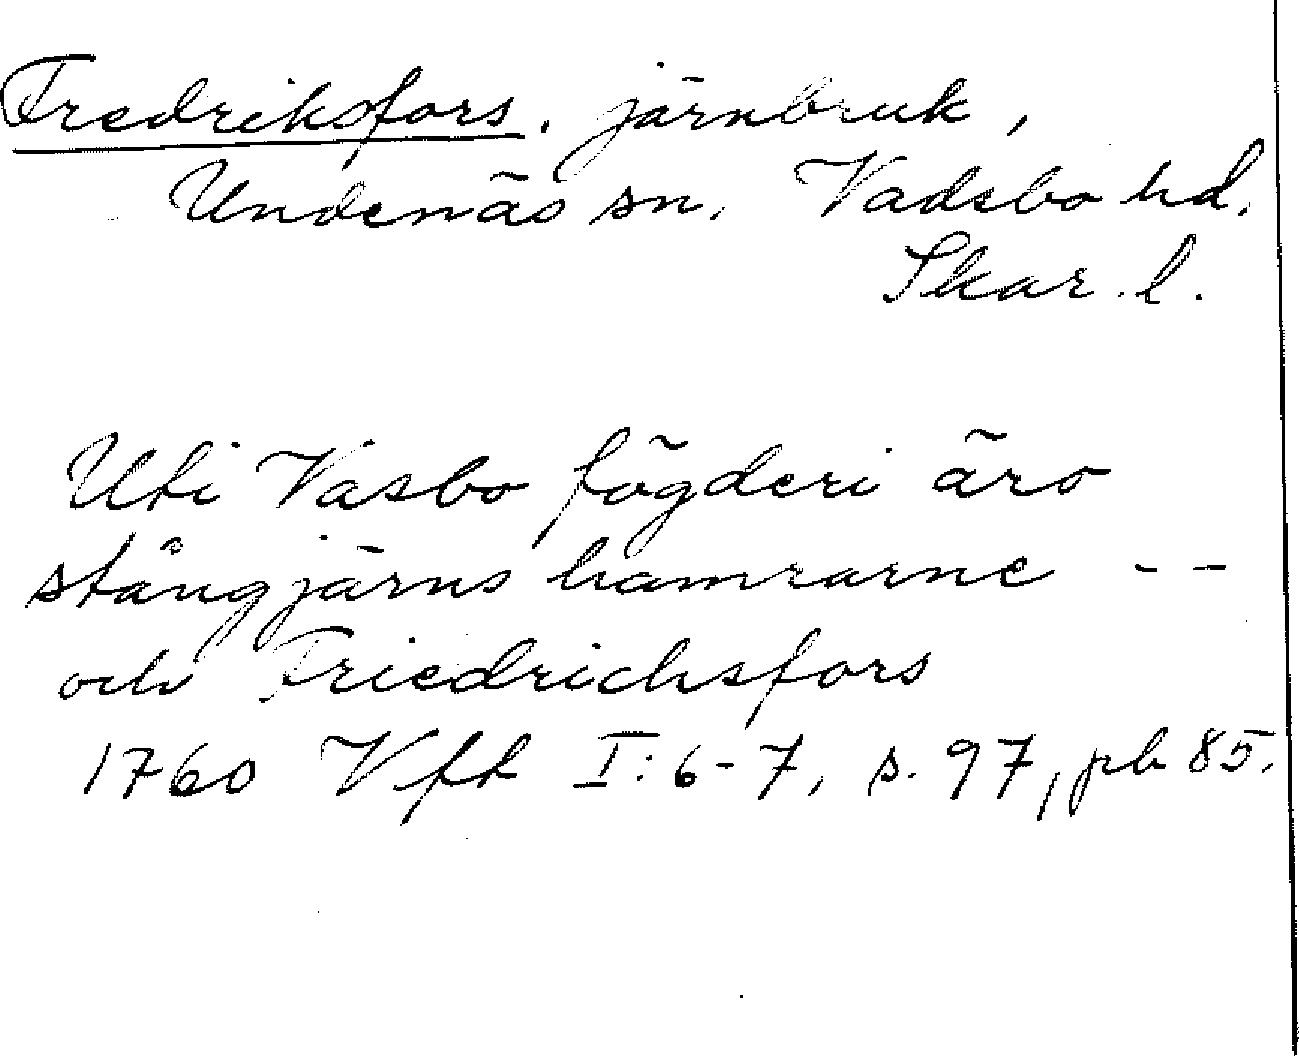 Fredriksfors, järnbruk,
Undenäs sn, Vadsbo hd.
Skar. l.
Uti Vasbo fögderi äro
stångjärns hamrarne --
och Friedrichsfors
1760 Vft I:6-7, s. 97, pb 85.